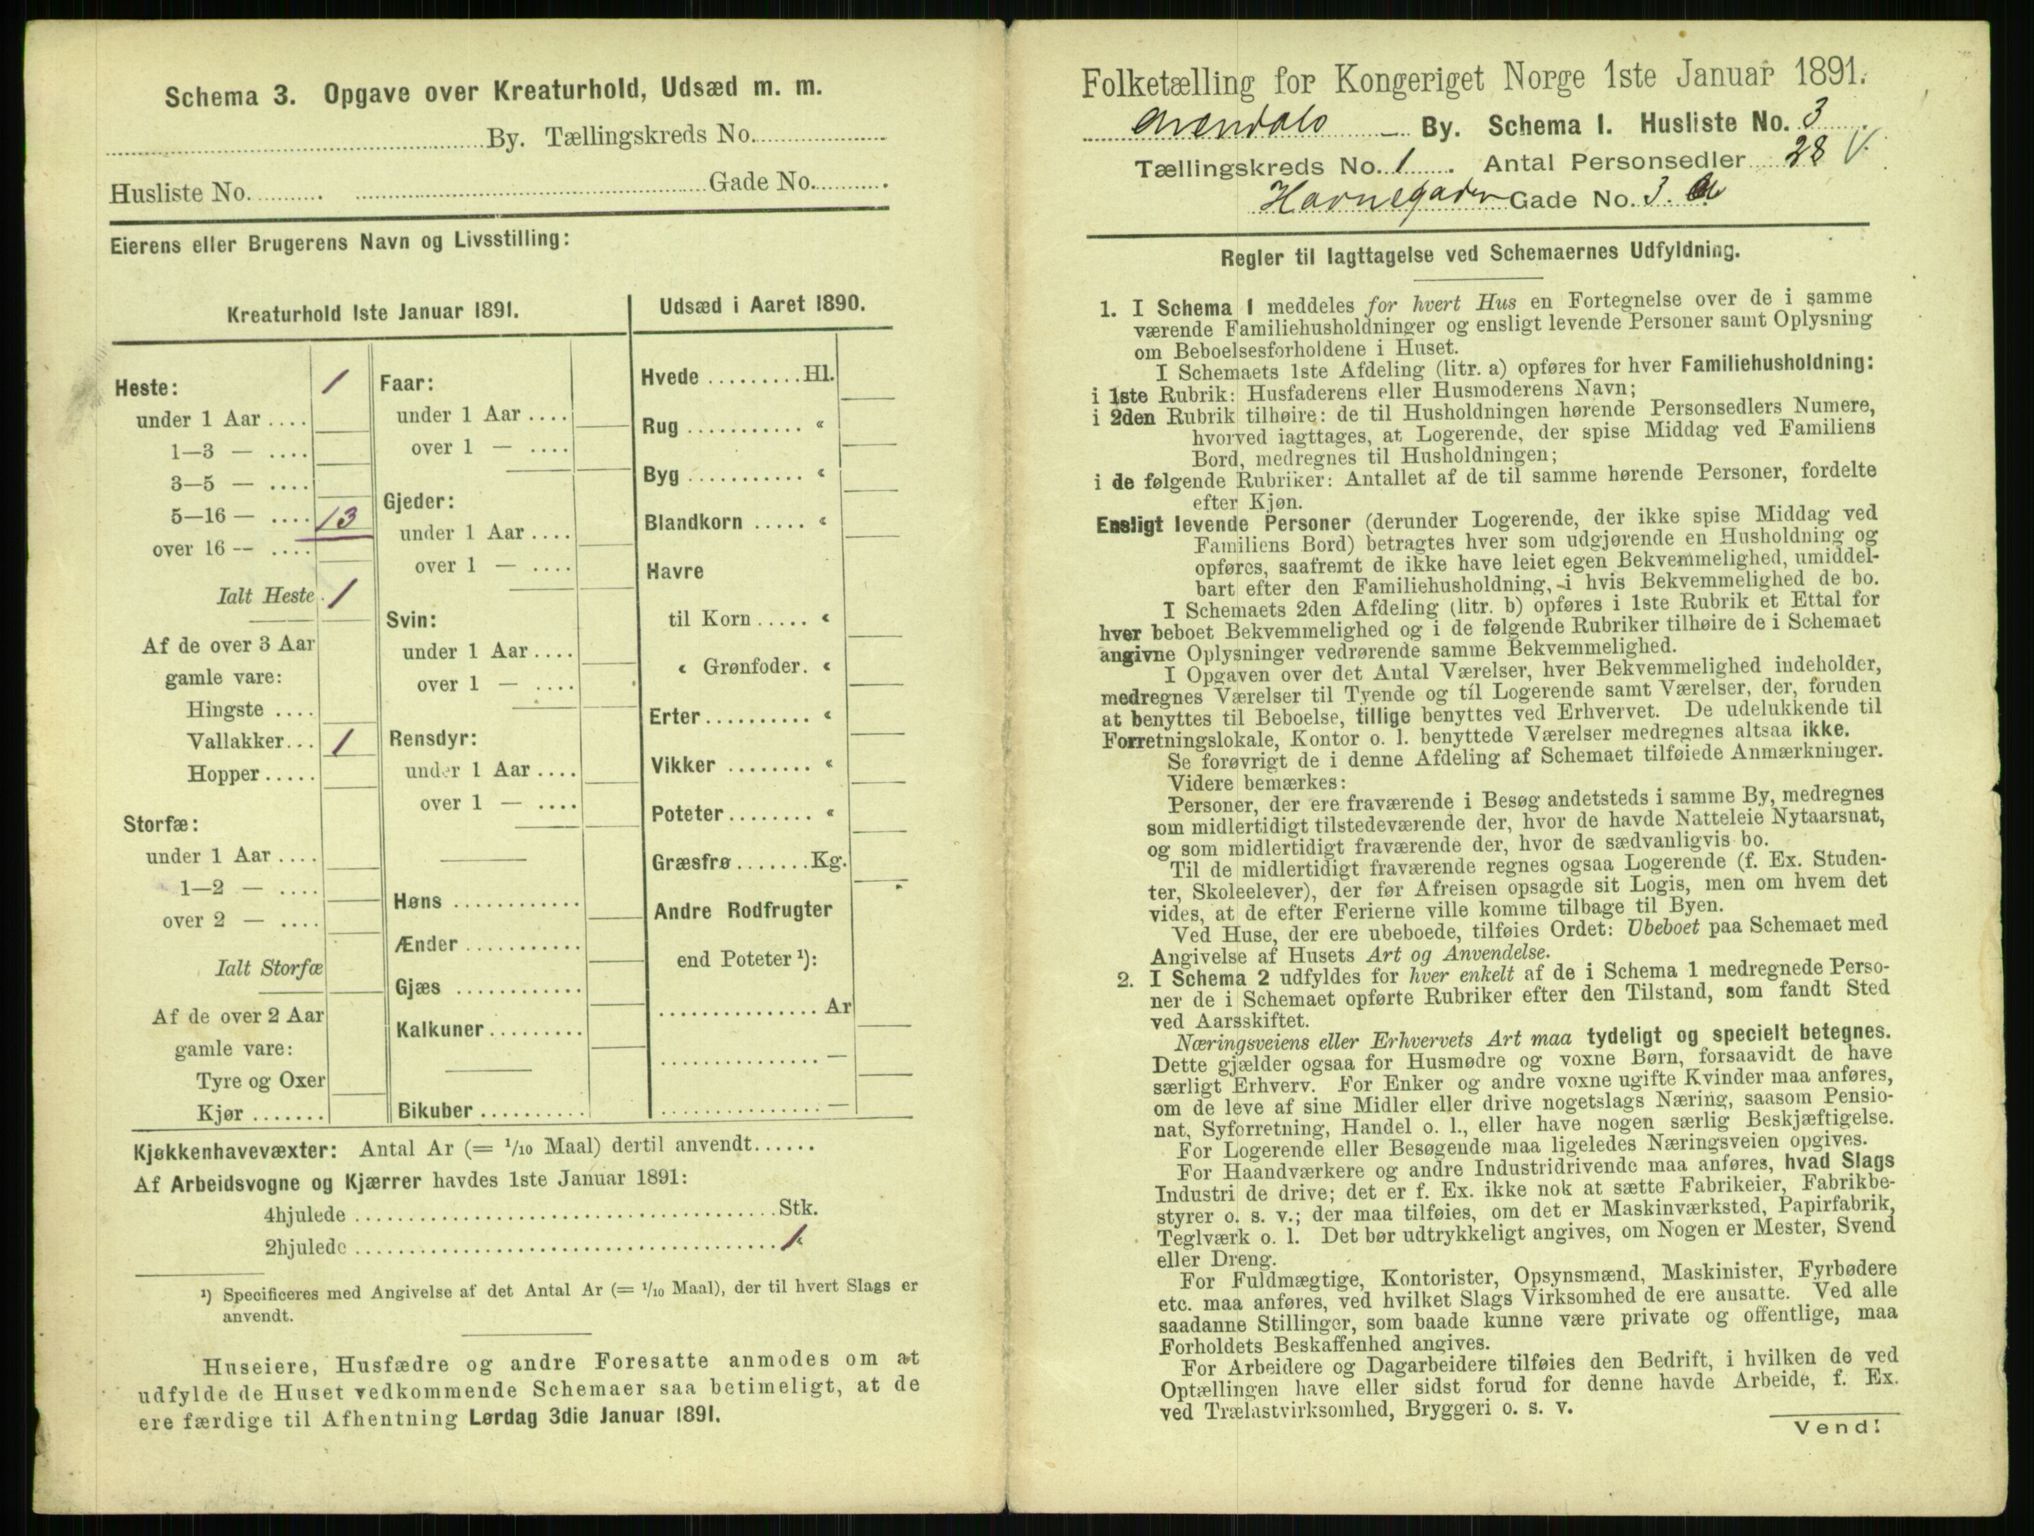 Schema 3. Opgave over Kreaturhold, Udsæd m. m.
By. Tællingskreds No.
Husliste No. Gade No.
Eierens eller Brugerens Navn og Livsstilling:
Kreaturhold 1ste Januar 1891.
Heste: 1
under 1 Aar ....
1—3 — ....
3—5 — ....
5—16 — .... 13
over 16 — ....
Ialt Heste. 1
Af de over 3 Aar
gamle vare:
Hingste ....
Vallakker... 1
Hopper.....
Storfæ:
under 1 Aar ....
1—2 — ....
over 2 — ....
Ialt Storfæ
Af de over 2 Aar
gamle vare:
Tyre og Oxer
Kjør .......
Faar:
under 1 Aar ....
over 1 — ....
Gjeder:
under 1 Aar ....
over 1 — ....
Svin:
under 1 Aar ....
over 1 — ....
Rensdyr:
under 1 Aar ....
over 1 — ....
Høns ............
Ænder ...........
Gjæs ............
Kalkuner.........
Bikuber ..........
Udsæd i Aaret 1890.
Hvede .........Hl.
Rug ........... «
Byg ........... «
Blandkorn ..... «
Havre
til Korn ..... «
« Grønfoder. «
Erter.......... «
Vikker ........ «
Poteter ........ «
Græsfrø .......Kg.
Andre Rodfrugter
end Poteter ¹):
............... Ar
............... —
............... —
Kjøkkenhavevæxter: Antal Ar (= 1/10 Maal) dertil anvendt......
Af Arbeidsvogne og Kjærrer havdes 1ste Januar 1891:
4hjulede ........................................Stk.
2hjulede ........................................ 1 «
¹) Specificeres med Angivelse af det Antal Ar (= 1/10 Maal), der til hvert Slags er
anvendt.
Huseiere, Husfædre og andre Foresatte anmodes om at
udfylde de Huset vedkommende Schemaer saa betimeligt, at de
ere færdige til Afhentning Lørdag 3die Januar 1891.
Folketælling for Kongeriget Norge 1ste Januar 1891.
Arendals — By. Schema I. Husliste No. 3
Tællingskreds No. 1. Antal Personsedler 28 V.
Havnegaden Gade No. 3. a
Regler til Iagttagelse ved Schemaernes Udfyldning.
1. I Schema 1 meddeles for hvert Hus en Fortegnelse over de i samme
værende Familiehusholdninger og ensligt levende Personer samt Oplysning
om Beboelsesforholdene i Huset.
I Schemaets 1ste Afdeling (litr. a) opføres for hver Familiehusholdning:
i 1ste Rubrik: Husfaderens eller Husmoderens Navn;
i 2den Rubrik tilhøire: de til Husholdningen hørende Personsedlers Numere,
hvorved iagttages, at Logerende, der spise Middag ved Familiens
Bord, medregnes til Husholdningen;
i de følgende Rubriker: Antallet af de til samme hørende Personer, fordelte
efter Kjøn.
Ensligt levende Personer (derunder Logerende, der ikke spise Middag ved
Familiens Bord) betragtes hver som udgjørende en Husholdning og
opføres, saafremt de ikke have leiet egen Bekvemmelighed, umiddel-
bart efter den Familiehusholdning, i hvis Bekvemmelighed de bo.
I Schemaets 2den Afdeling (litr. b) opføres i 1ste Rubrik et Ettal for
hver beboet Bekvemmelighed og i de følgende Rubriker tilhøire de i Schemaet
angivne Oplysninger vedrørende samme Bekvemmelighed.
I Opgaven over det Antal Værelser, hver Bekvemmelighed indeholder,
medregnes Værelser til Tyende og til Logerende samt Værelser, der, foruden
at benyttes til Beboelse, tillige benyttes ved Erhvervet. De udelukkende til
Forretningslokale, Kontor o. l. benyttede Værelser medregnes altsaa ikke.
Se forøvrigt de i denne Afdeling af Schemaet tilføiede Anmærkninger.
Videre bemærkes:
Personer, der ere fraværende i Besøg andetsteds i samme By, medregnes
som midlertidigt tilstedeværende der, hvor de havde Natteleie Nytaarsnat,
og som midlertidigt fraværende der, hvor de sædvanligvis bo.
Til de midlertidigt fraværende regnes ogsaa Logerende (f. Ex. Studen-
ter, Skoleelever), der før Afreisen opsagde sit Logis, men om hvem det
vides, at de efter Ferierne ville komme tilbage til Byen.
Ved Huse, der ere ubeboede, tilføies Ordet: Ubeboet paa Schemaet med
Angivelse af Husets Art og Anvendelse.
2. I Schema 2 udfyldes for hver enkelt af de i Schema 1 medregnede Perso-
ner de i Schemaet opførte Rubriker efter den Tilstand, som fandt Sted
ved Aarsskiftet.
Næringsveiens eller Erhvervets Art maa tydeligt og specielt betegnes.
Dette gjælder ogsaa for Husmødre og voxne Børn, forsaavidt de have
særligt Erhverv. For Enker og andre voxne ugifte Kvinder maa anføres,
om de leve af sine Midler eller drive nogetslags Næring, saasom Pensio-
nat, Syforretning, Handel o. l., eller have nogen særlig Beskjæftigelse.
For Logerende eller Besøgende maa ligeledes Næringsveien opgives.
For Haandværkere og andre Industridrivende maa anføres, hvad Slags
Industri de drive; det er f. Ex. ikke nok at sætte Fabrikeier, Fabrikbe-
styrer o. s. v.; der maa tilføies, om det er Maskinværksted, Papirfabrik,
Teglværk o. l. Det bør udtrykkeligt angives, om Nogen er Mester, Svend
eller Dreng.
For Fuldmægtige, Kontorister, Opsynsmænd, Maskinister, Fyrbødere
etc. maa anføres, ved hvilket Slags Virksomhed de ere ansatte. Ved alle
saadanne Stillinger, som baade kunne være private og offentlige, maa
Forholdets Beskaffenhed angives.
For Arbeidere og Dagarbeidere tilføies den Bedrift, i hvilken de ved
Optællingen have eller sidst forud for denne havde Arbeide, f. Ex.
ved Trælastvirksomhed, Bryggeri o. s. v.
Vend!